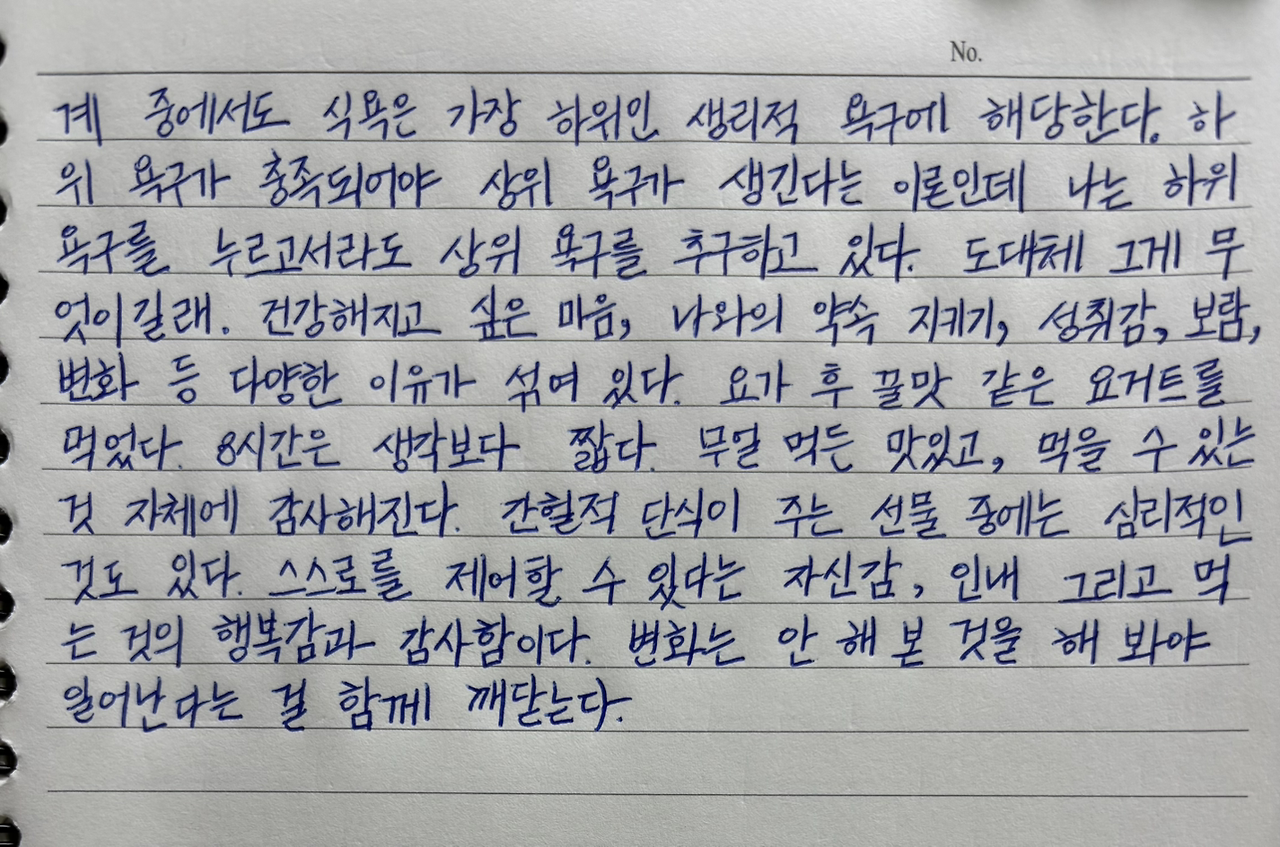 No.
계 중에서도 식욕은 가장 하위인 생리적 욕구에 해당한다. 하
위 욕구가 충족되어야 상위 욕구가 생긴다는 이론인데 나는 하위
욕구를 누르고서라도 상위 욕구를 추구하고 있다. 도대체 그게 무
엇이길래. 건강해지고 싶은 마음, 나와의 약속 지키기, 성취감, 보람,
변화 등 다양한 이유가 섞여 있다. 요가 후 꿀맛 같은 요거트를
먹었다. 8시간은 생각보다 짧다. 무얼 먹든 맛있고, 먹을 수 있는
것 자체에 감사해진다. 간헐적 단식이 주는 선물 중에는 심리적인
것도 있다. 스스로를 제어할 수 있다는 자신감, 인내 그리고 먹
는 것의 행복감과 감사함이다. 변화는 안 해 본 것을 해 봐야
일어난다는 걸 함께 깨닫는다.